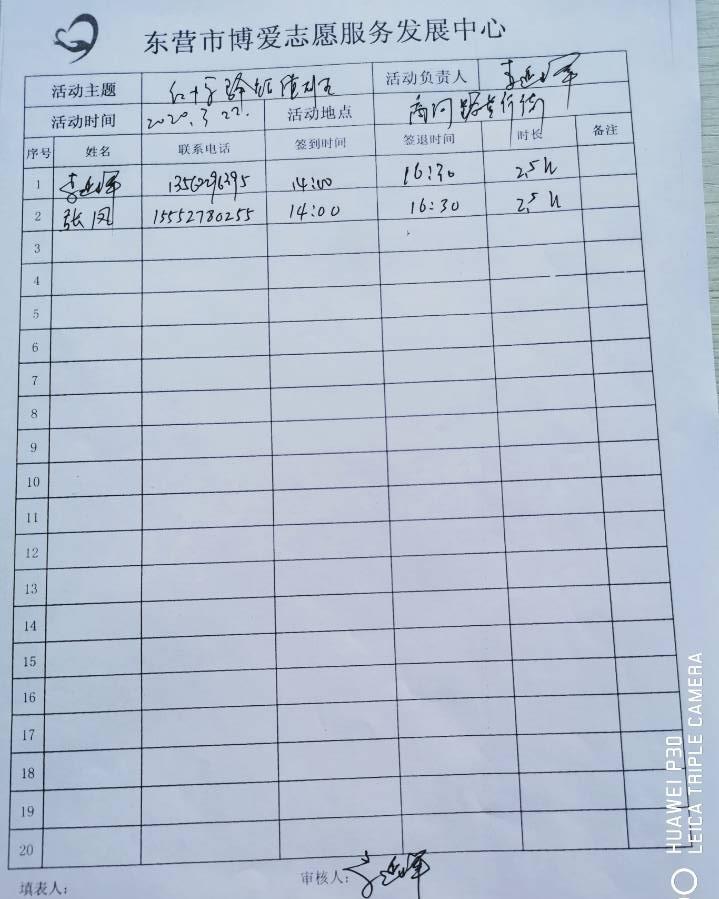 东营市博爱志愿服务发展中心
活动主题 红十字 活动负责人 李延军
活动时间 2020.3.22. 活动地点 商河路步行街
序号 姓名 联系电话 签到时间 签退时间 时长 备注
1 李延军 14:00 16:30 2.5h
2 张凤 15552780255 14:00 16:30 2.5h
3
4
5
6
7
8
9
10
11
12
13
14
15
16
17
18
19
20
填表人： 审核人：李延军
HUAWEI P30
LEICA TRIPLE CAMERA